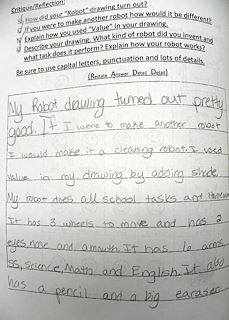 Critique/Reflection:
How did your "Robot" drawing turn out?
If you were to make another robot how would it be different?
Explain how you used "Value" in your drawing.
Describe your drawing. What kind of robot did you invent and
what task does it perform? Explain how your robot works?
Be sure to use capital letters, punctuation and lots of details.
(Restate Answer Detail Detail)
My Robot drawing turned out pretty
good. If I were to make another robot
I would make it a cleaning robot. I used
value in my drawing by adding shade.
My robot does all school tasks and
It has 3 wheels to move and has 2
eyes, nose and a mouth. It has 6 arms,
SS, Science, Math and English. It also
has a pencil and a big earaser